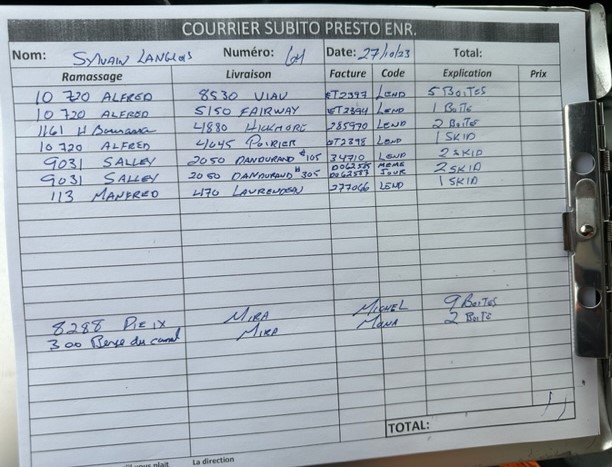 COURRIER SUBITO PRESTO ENR.
Nom: Sylvain Langlois Numéro: 64 Date: 27/10/23 Total:
Ramassage Livraison Facture Code Explication Prix
10 720 ALFRED 8530 VIAU ET2397 LEND 5 BOITES
10 720 ALFRED 5150 FAIRWAY ET2394 LEND 1 BOITE
1161 H 4880 HICKMORE 285970 LEND 2 BOITE
10 720 ALFRED 4045 POIRIER ET2398 LEND 1 SKID
9031 SALLEY 2050 DANDURAND #105 34710 LEND 2 SKID
9031 SALLEY 2050 DANDURAND #305 DO62585 DO62587 MEME JOUR 2 SKID
113 MANFRED 470 LAURENDEAU 277066 LEND 1 SKID
8288 PIE IX MIRA MICHEL 9 BOITES
300 Berge du canal MIRA MONA 2 BOITE
TOTAL:
vous plait La direction